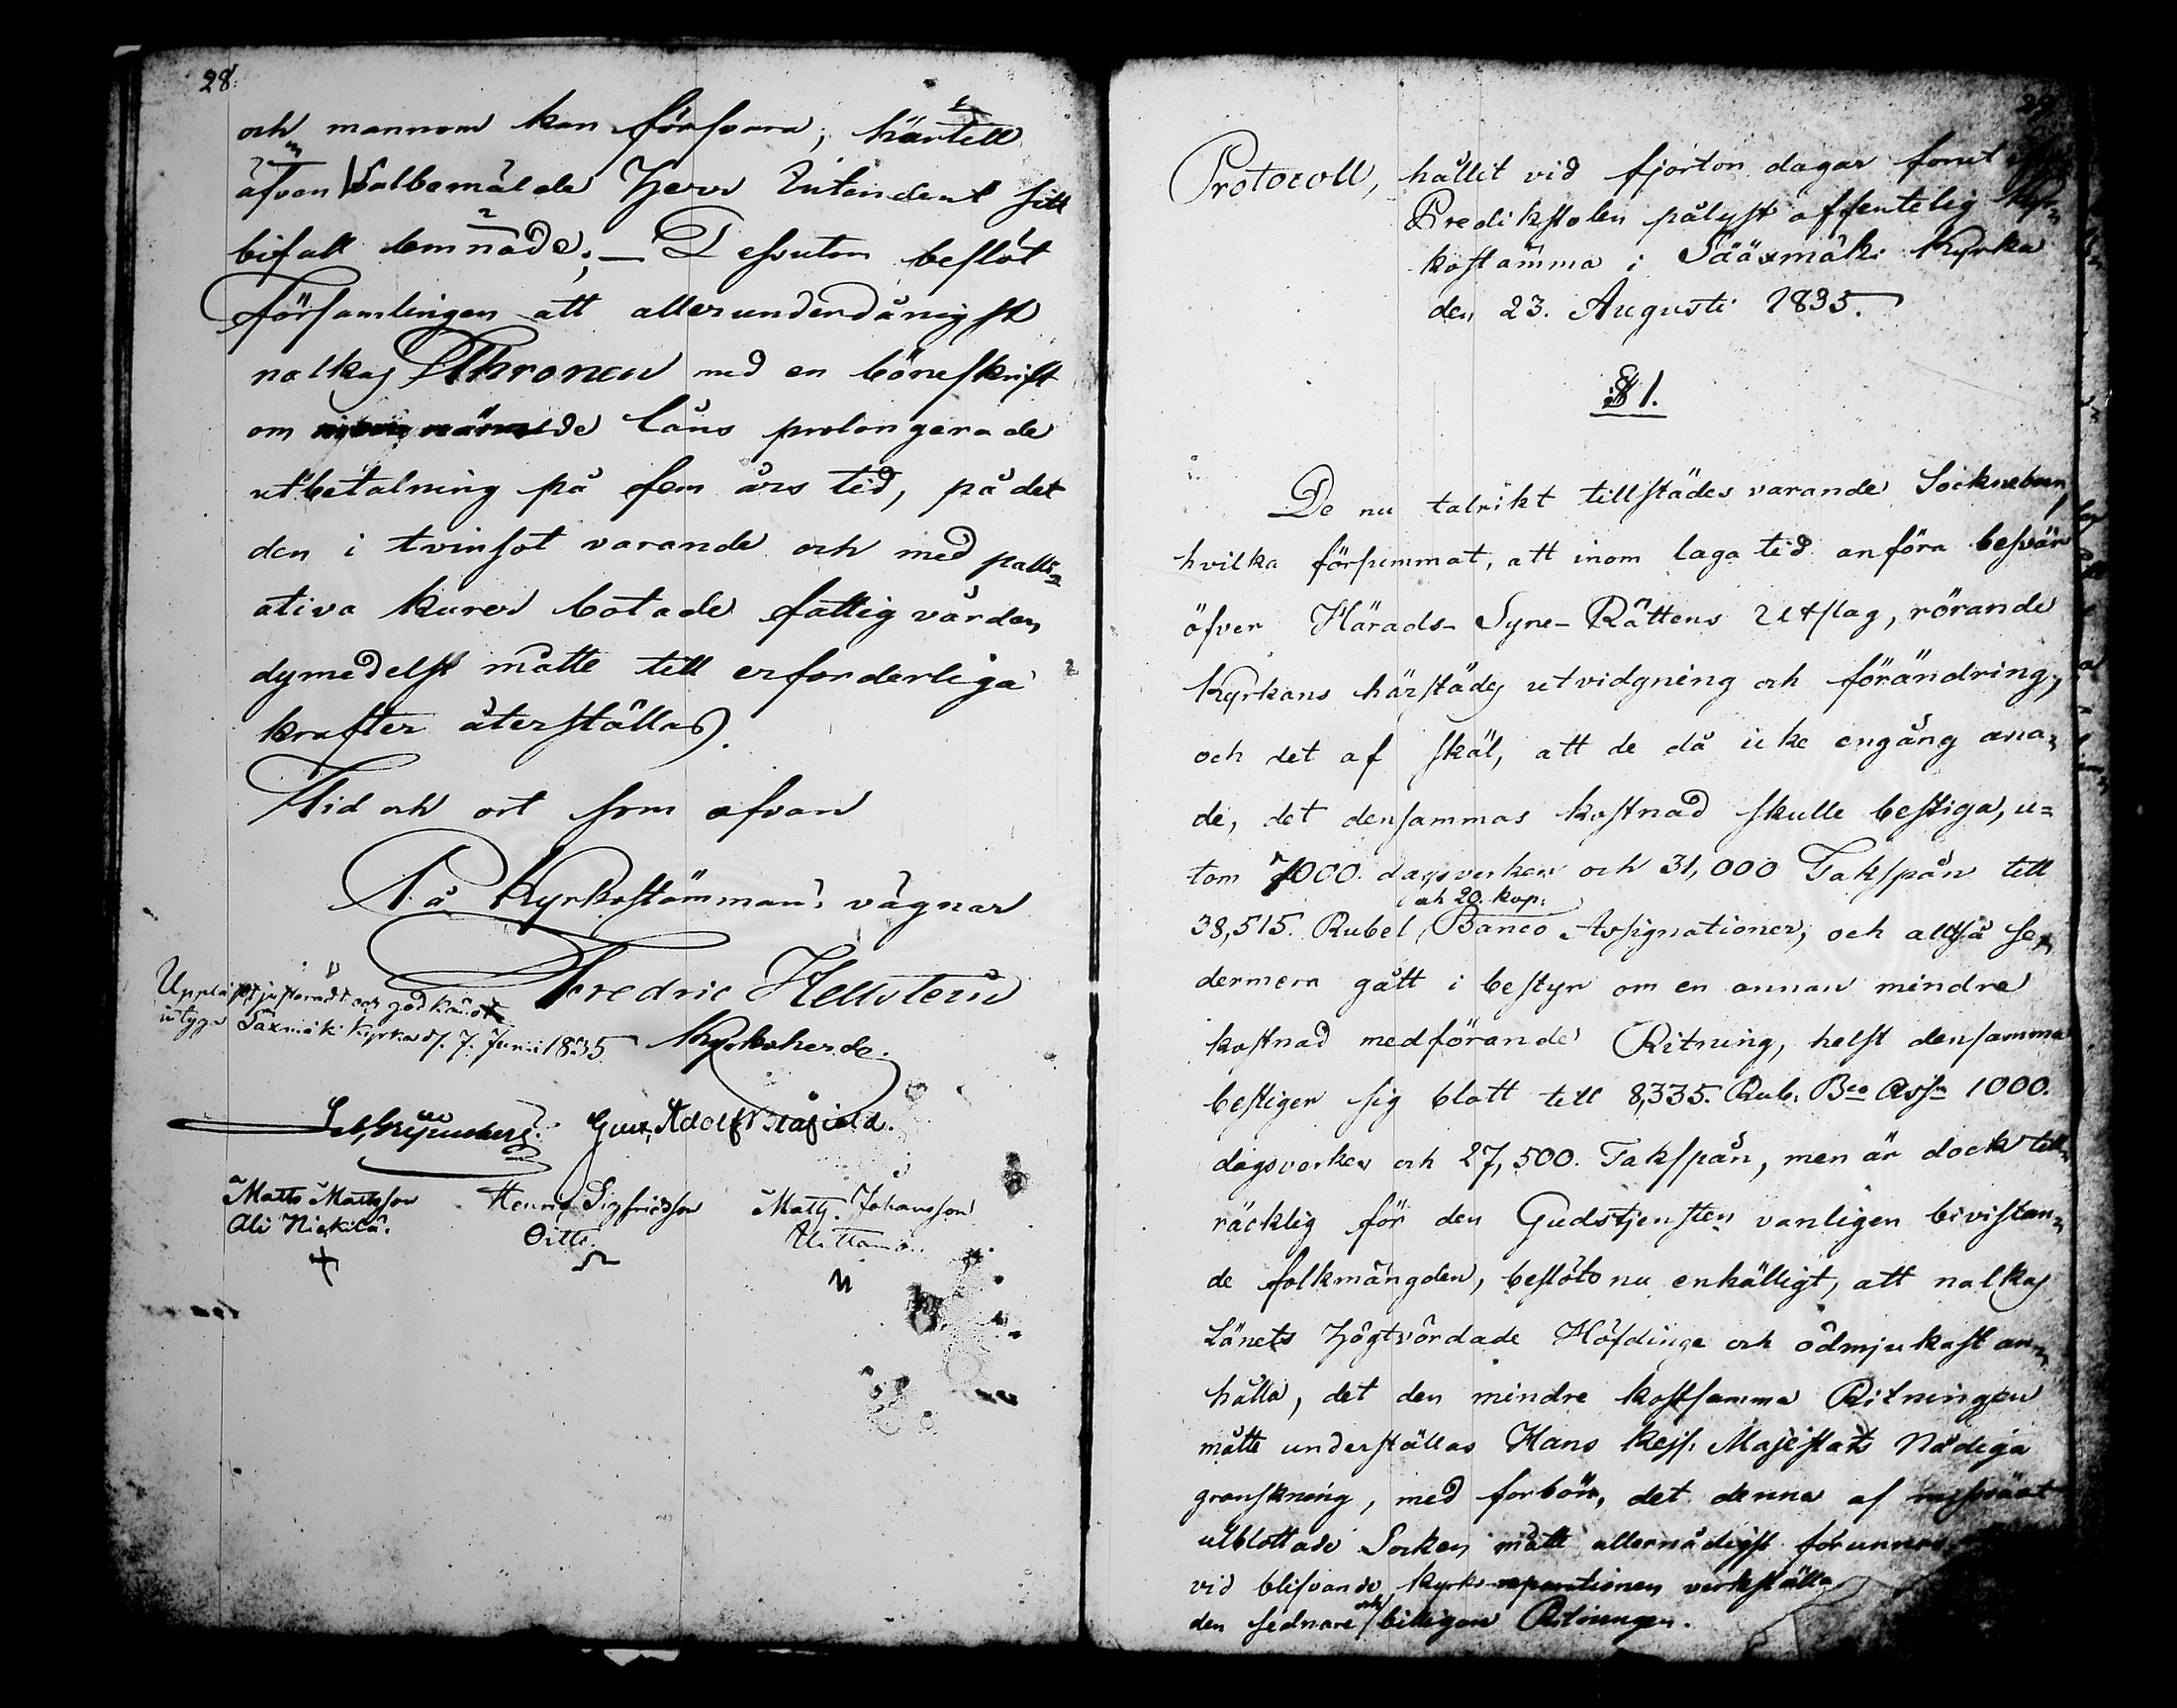 28.
och mannom kan försvara; härtill
äfven Välbemälde Herr Intendent sitt
bifall lemnade; — Dessutom beslöt
Församlingen att allerunderdånigst
nalkas Thronen med en böneskrift
om nämnde låns prolongerade
utbetalning på fem års tid, på det
den i tvinsot varande och med palli=
ativa kurer botade fattigvården
dymedelst måtte till erforderliga
krafter återställas.
Tid och ort som ofvan
På Kyrkostämmans vägnar
Fredric Hellsteru
Kyrkoherde.
Uppläst, justeradt och godkändt
intyga Säxmäki Kyrka d. 7. Junii 1835
Gust. Adolf Blåfield.
Matts Mattsson Henric Sigfridsson Matts Johansson
Ali Nickilä. Oitti. Uittamo.
29
Protocoll, hållit vid fjorton dagar förut ifrån
Predikstolen pålyst offentelig Kyr=
kostämma i Sääxmäki Kyrka
den 23. Augusti 1835.
§ 1.
De nu talrikt tillstädes varande Sockneboen,
hvilka försummat, att inom laga tid anföra besvär
öfver Härads-Syne-Rättens Utslag, rörande
Kyrkans härstädes utvidgning och förändring,
och det af skäl, att de då icke engång ana=
de, det densammas kostnad skulle bestiga, u=
tom 7000. dagsverken och 31,000 Takspån till
38,515. Rubel och 20. kop. Banco Assignationer, och alltså se=
dermera gått i bestyr om en annan mindre
kostnad medförande Ritning, helst densamma
bestiger sig blott till 8,335. Rub. Bco Assn 1000.
dagsverken och 27,500. Takspån, men är dock till=
räcklig för den Gudstjensten vanligen bivistan=
de folkmängden, beslöto nu enhälligt, att nalkas
Länets Högtvördade Höfdinge och ödmjukast an=
hålla, det den mindre kostsamma Ritningen
måtte underställas Hans Kejs. Majestäts Nådiga
granskning, med forbön, det denna af missväxt
utblottade Socken måtte allernådigst förunnas
vid blifvande kyrko-reparationen verkställa
den sednare och billigare Ritningen.